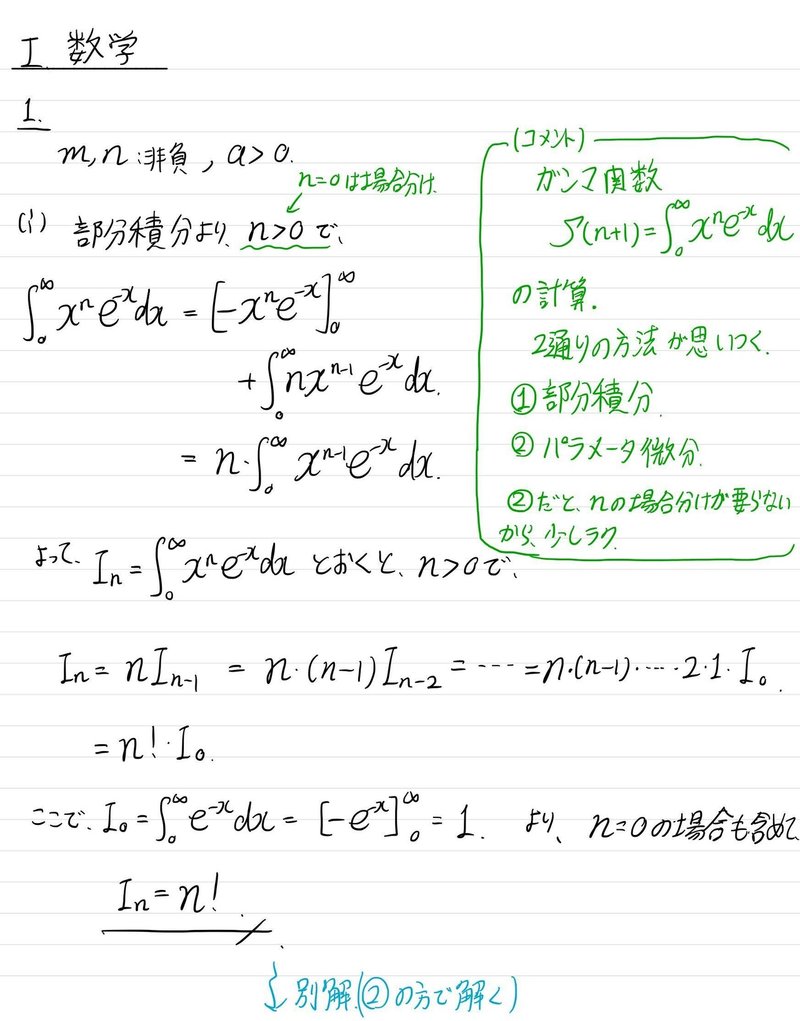 I. 数学
1.
m, n : 非負, a > 0.
n=0 は場合分け.
(i) 部分積分より、n>0 で、
∫₀^∞ xⁿ e^{-x} dx = [-xⁿ e^{-x}]₀^∞
+ ∫₀^∞ n x^{n-1} e^{-x} dx.
= n·∫₀^∞ x^{n-1} e^{-x} dx.
(コメント)
ガンマ関数
Γ(n+1) = ∫₀^∞ xⁿ e^{-x} dx
の計算.
2通りの方法が思いつく.
① 部分積分.
② パラメータ微分.
②だと、nの場合分けが要らない
から、少しラク.
よって、Iₙ = ∫₀^∞ xⁿ e^{-x} dx とおくと、n>0 で、
Iₙ = n I_{n-1} = n·(n-1) I_{n-2} = ---- = n·(n-1)·----·2·1·I₀.
= n!·I₀.
ここで、I₀ = ∫₀^∞ e^{-x} dx = [-e^{-x}]₀^∞ = 1. より、n=0 の場合も含めて
Iₙ = n!.
別解.(②の方で解く)